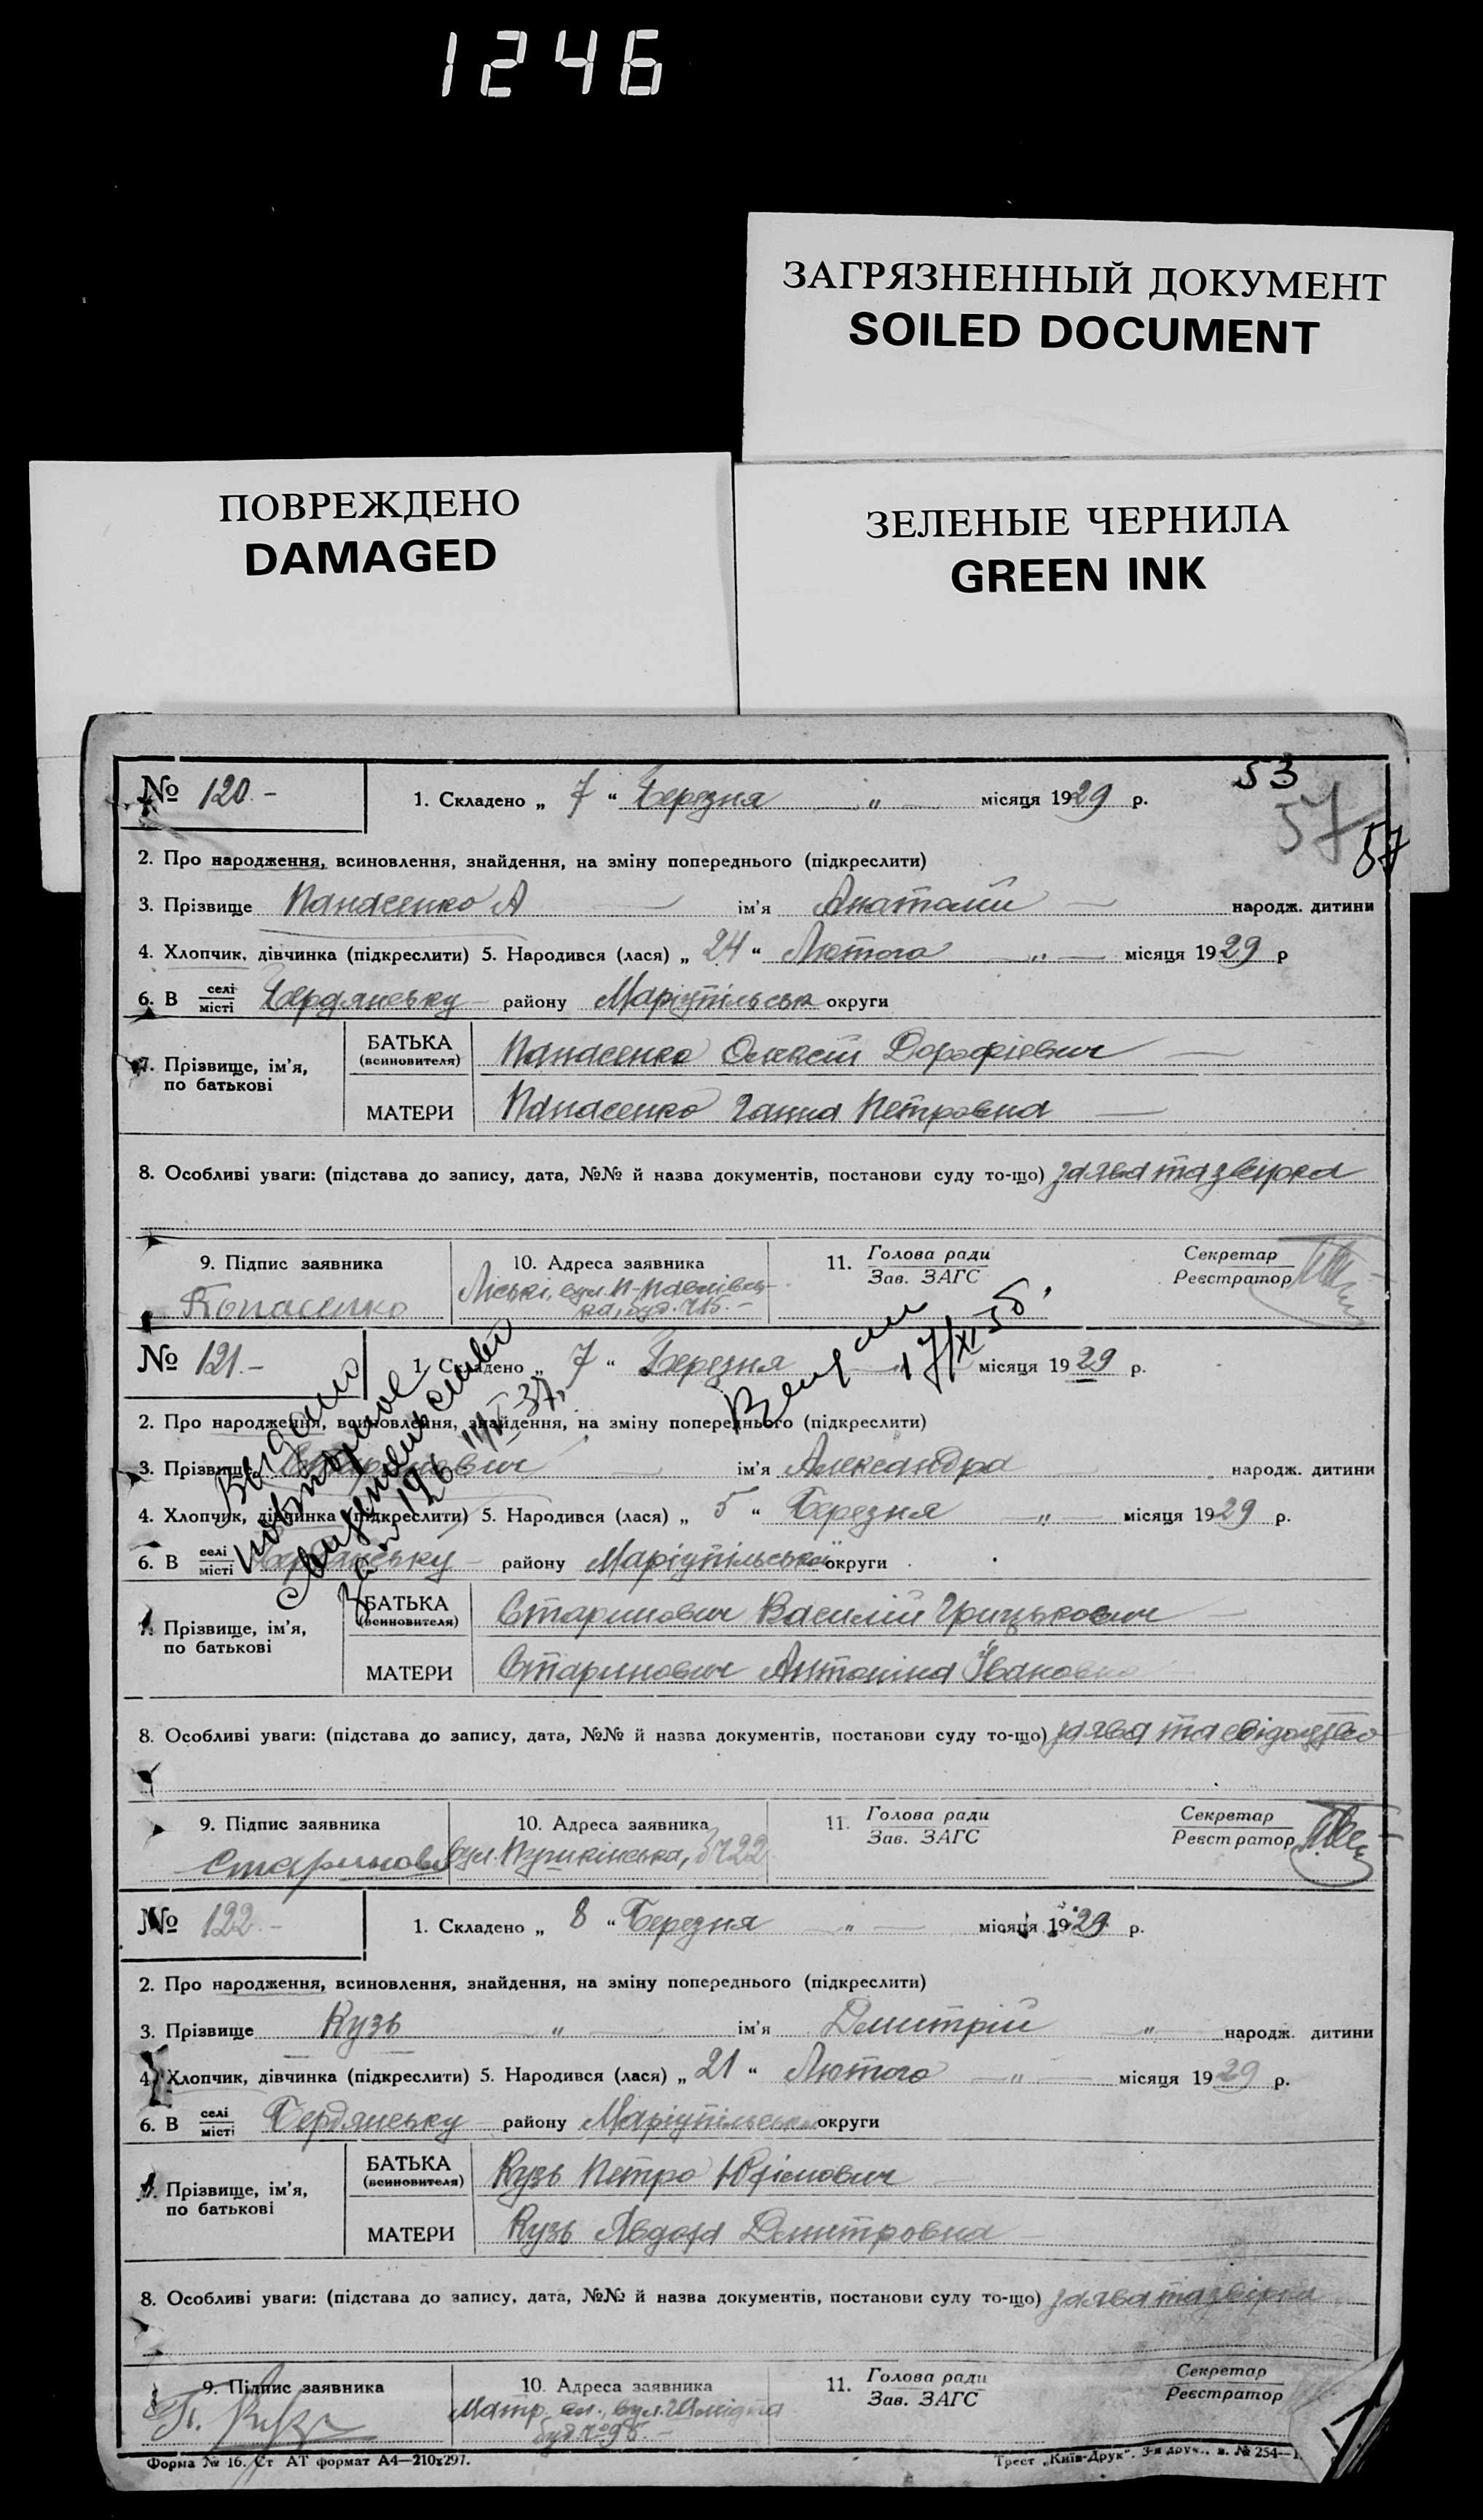 1246
ЗАГРЯЗНЕННЫЙ ДОКУМЕНТ
SOILED DOCUMENT
ПОВРЕЖДЕНО
DAMAGED
ЗЕЛЕНЫЕ ЧЕРНИЛА
GREEN INK
53
57
57
№ 120.- 1. Складено „ 7 “ Березня — „ — місяця 1929 р.
2. Про народження, всиновлення, знайдення, на зміну попереднього (підкреслити)
3. Прізвище Панасенко А — ім'я Анатолій — народж. дитини
4. Хлопчик, дівчинка (підкреслити) 5. Народився (лася) „ 24 “ Лютого — „ — місяця 1929 р
6. В селі місті Бердянську — району Маріупільськ округи
7. Прізвище, ім'я, по батькові
БАТЬКА (всиновителя) Панасенко Олексій Дорофієвич —
МАТЕРИ Панасенко Ганна Петровна —
8. Особливі уваги: (підстава до запису, дата, №№ й назва документів, постанови суду то-що) заява та звірка
9. Підпис заявника 10. Адреса заявника 11. Голова ради Зав. ЗАГС Секретар Реєстратор
Ліські, вул. П-Павлівсь-
ка, буд.
№ 121.- 1. Складено „ 7 “ Березня місяця 1929 р.
17/XI
Видано
повторное
свидетельство
2. Про народження, всиновлення, знайдення, на зміну попереднього (підкреслити)
3. Прізвище Старинович — ім'я Александра народж. дитини
4. Хлопчик, дівчинка (підкреслити) 5. Народився (лася) „ 5 “ Березня — „ — місяця 1929 р.
6. В селі місті Бердянську — району Маріупільської округи
7. Прізвище, ім'я, по батькові
БАТЬКА (всиновителя) Старинович Василій Грицькович —
МАТЕРИ Старинович Антоніна Івановна
8. Особливі уваги: (підстава до запису, дата, №№ й назва документів, постанови суду то-що) заява та свідоцтво
9. Підпис заявника 10. Адреса заявника 11. Голова ради Зав. ЗАГС Секретар Реєстратор
вул. Пушкінська, 22
№ 122.- 1. Складено „ 8 “ Березня — „ — місяця 1929 р.
2. Про народження, всиновлення, знайдення, на зміну попереднього (підкреслити)
3. Прізвище Кузь — „ — ім'я Дмитрій „ народж. дитини
4. Хлопчик, дівчинка (підкреслити) 5. Народився (лася) „ 21 “ Лютого — „ — місяця 1929 р.
6. В селі місті Бердянську — району Маріупільської округи
7. Прізвище, ім'я, по батькові
БАТЬКА (всиновителя) Кузь Петро Юхімович
МАТЕРИ Кузь Явдоха Дмитровна
8. Особливі уваги: (підстава до запису, дата, №№ й назва документів, постанови суду то-що) заява та звірка
9. Підпис заявника 10. Адреса заявника 11. Голова ради Зав. ЗАГС Секретар Реєстратор
вул. Шмідта
Форма № 16. Ст АТ формат А4—210х297. Трест „Київ-Друк“. 3-я друк., з. № 254—